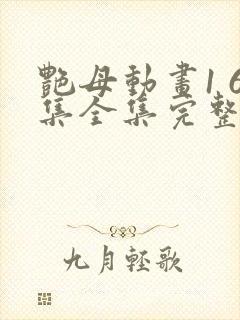 艷母動畫1 6
集全集完整
九月輕歌